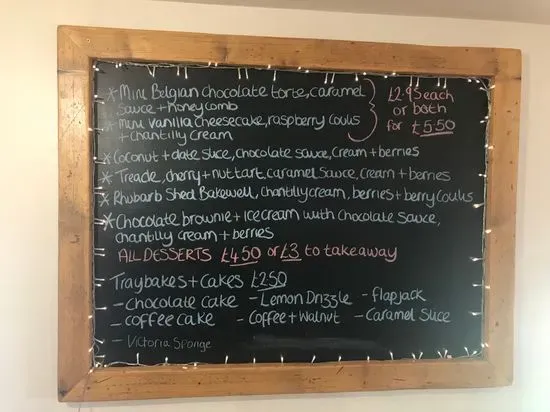 * Mini Belgian chocolate torte, caramel
Sauce + Honeycomb
* Mini vanilla cheesecake, raspberry coulis
+ chantilly cream
£2.95 each
or both
for £5.50
* Coconut + date slice, chocolate sauce, cream + berries
* Treacle, cherry + nut tart, caramel sauce, cream + berries
* Rhubarb Shed Bakewell, chantilly cream, berries + berry coulis
* Chocolate brownie + icecream with chocolate sauce,
chantilly cream + berries
ALL DESSERTS £4.50 or £3 to takeaway
Traybakes + Cakes £2.50
- chocolate cake - Lemon Drizzle - flapjack
- coffee cake - Coffee + Walnut - Caramel Slice
- Victoria Sponge